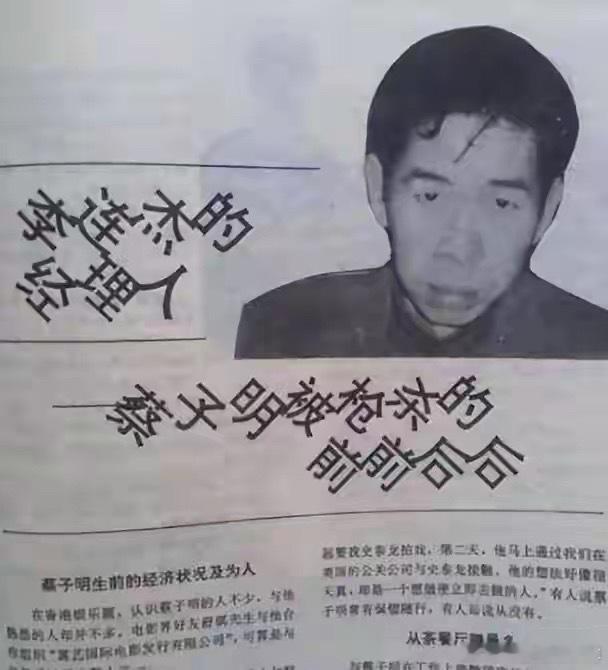 李连杰的
经理人
——蔡子明被枪杀的
前前后后
蔡子明生前的经济状况及为人
在香港娱乐圈，认识蔡子明的人不少，与他
熟悉的人却并不多，电影界好友先生与他合
国际电影发行有限公司”，可算是与
要找史泰龙拍戏，第二天，他马上通过我们在
美国的公关公司与史泰龙接触，他的想法好像很
天真，却是一个想做便立即去做的人。”有人说蔡
子明常有保镖随行，有人却说从没有。
从茶餐厅